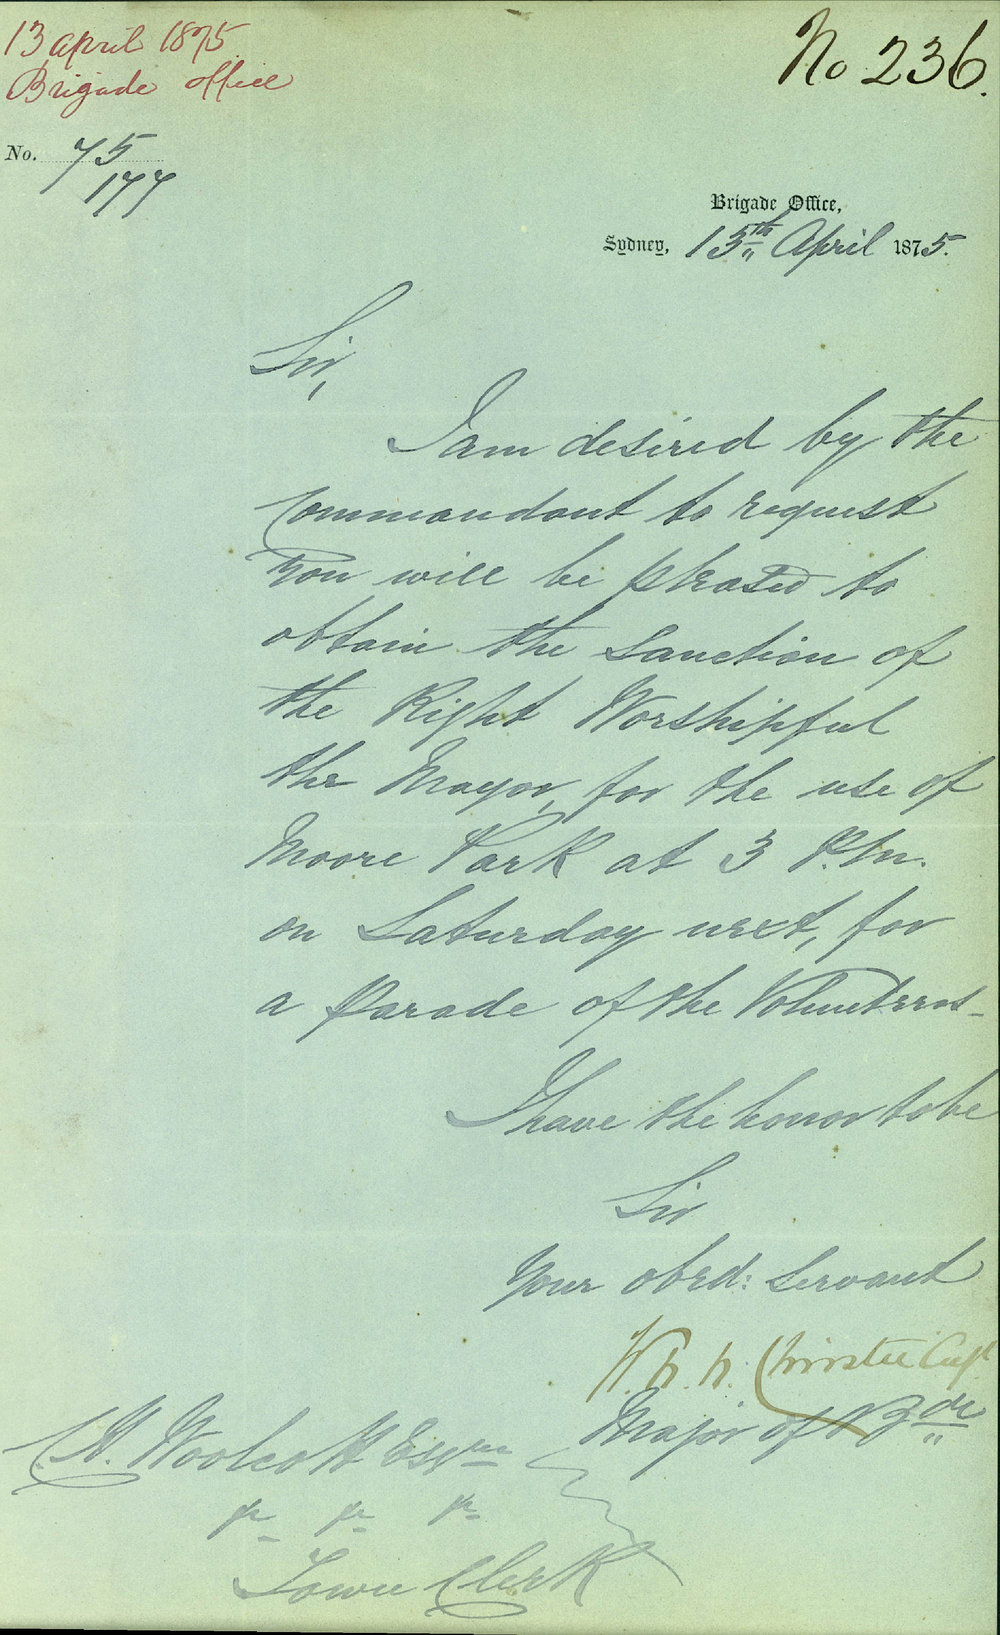 13 april 1875
Brigade office
No 236.
No. 75
177
Brigade Office,
Sydney, 13th April 1875.
Sir,
I am desired by the
Commandant to request
you will be pleased to
obtain the Sanction of
the Right Worshipful
the Mayor, for the use of
Moore Park at 3 P.M.
on Saturday next, for
a Parade of the Volunteers_
I have the honor to be
Sir
Your obed: Servant
Christie Capt
Major of Bde
C. H. Woolcott Esqre
Town Clerk